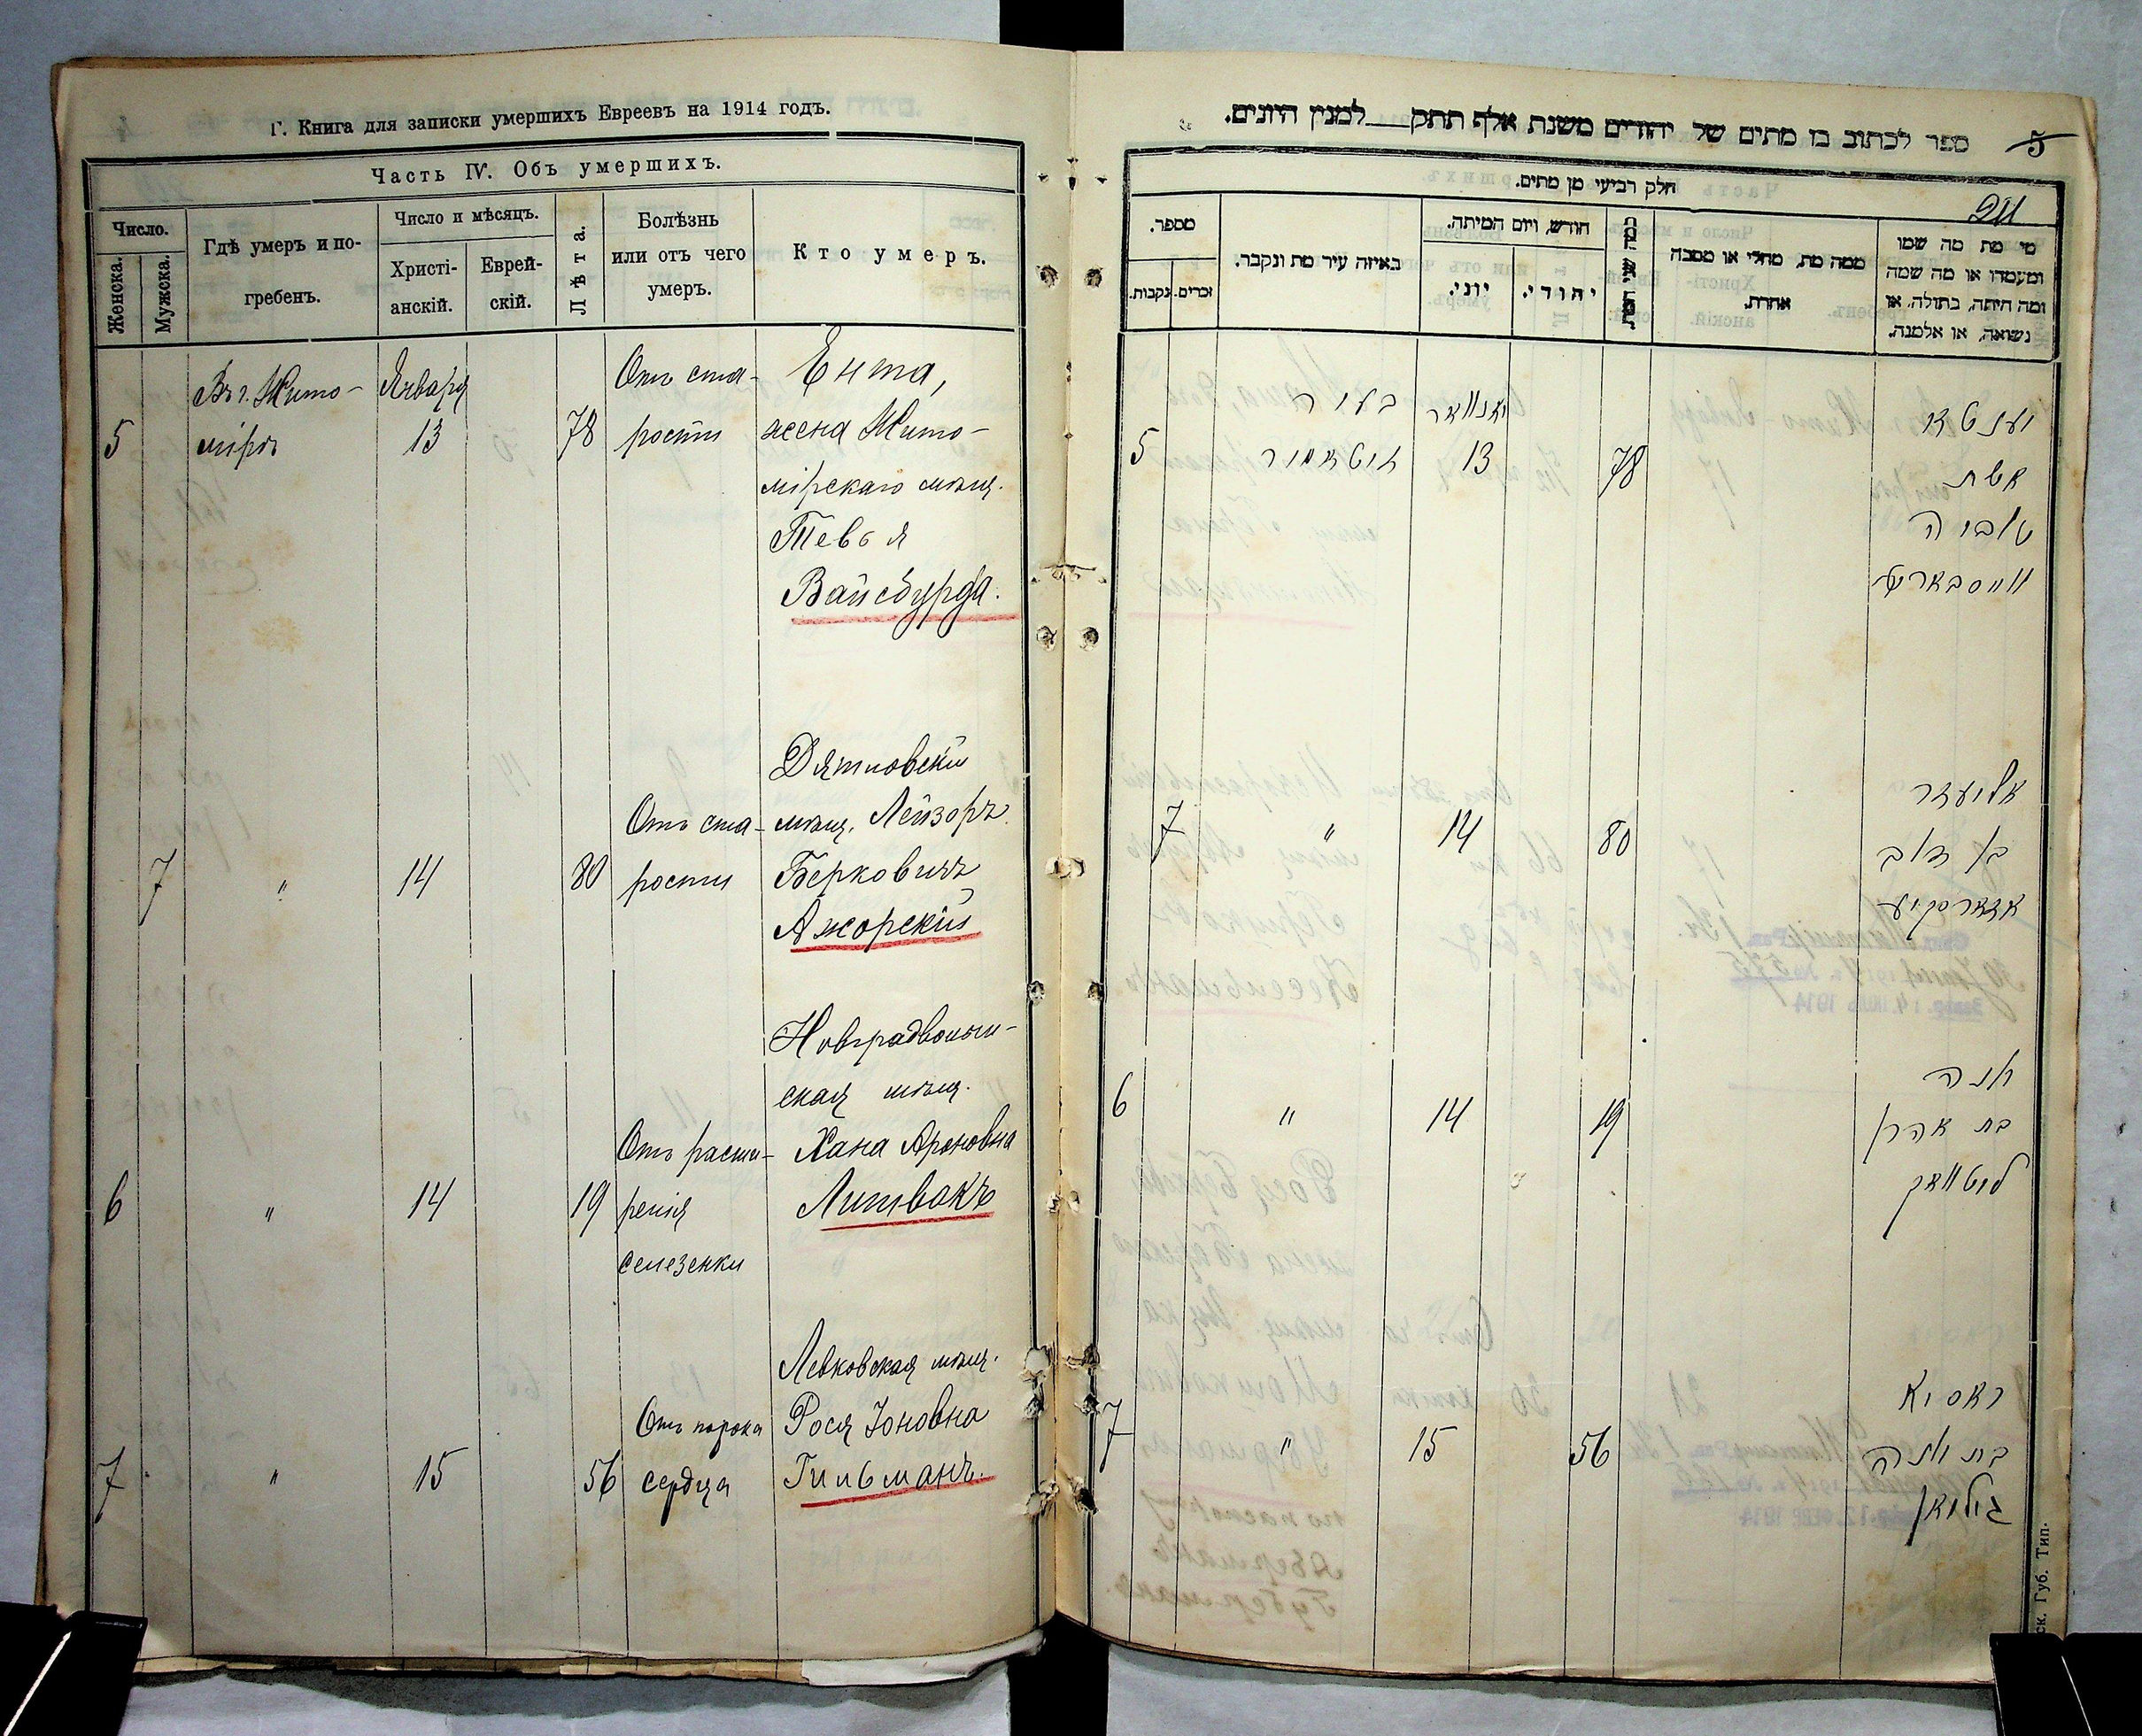 Г. Книга для записки умершихъ Евреевъ на 1914 годъ.
Часть IV. Объ умершихъ.
Число.
Женска.
Мужска.
Гдѣ умеръ и по-
гребенъ.
Число и мѣсяцъ.
Христі-
анскій.
Еврей-
скій.
Лѣта.
Болѣзнь
или отъ чего
умеръ.
Кто умеръ.
Въ г. Жито-
Января
Отъ ста-
Ента,
5
мірѣ
13
78
рости
жена Жито-
мірскаго мѣщ.
Тевья
Вайсбурда.
Дятловскій
Отъ ста-
мѣщ. Лейзоръ
7
"
14
80
рости
Берковичъ
Ажорскій
Новградволын-
ская мѣщ.
Отъ
Хана Ароновна
6
"
14
19
Литвакъ
селезенки
Левковская мѣщ.
Отъ порока
Рося Іоновна
7
"
15
56
сердца
Гильманъ.
ספר לכתוב בו מתים של יהודים משנת אלף תתק למנין היונים.
5
חלק רביעי מן מתים.
מספר.
נקבות.
זכרים.
באיזה עיר מת ונקבר.
חודש, ויום המיתה.
יוני.
יהודי.
כמה שני המת.
ממה מת, מחלי או מסבה
אחרת.
מי מת מה שמו
ומעמדו או מה שמה
ומה היתה, בתולה, או
נשואה, או אלמנה.
בעיר
יאנוואר
יענטא
5
זיטאמיר
13
78
אשת
טוביה
ווייסבארט
אליעזר
7
"
14
80
בן דוב
אזארסקיע
חנה
6
"
14
19
בת אהרן
ליטוואק
ראסיא
7
"
15
56
בת יונה
גילמאן
ск. Губ. Тип.